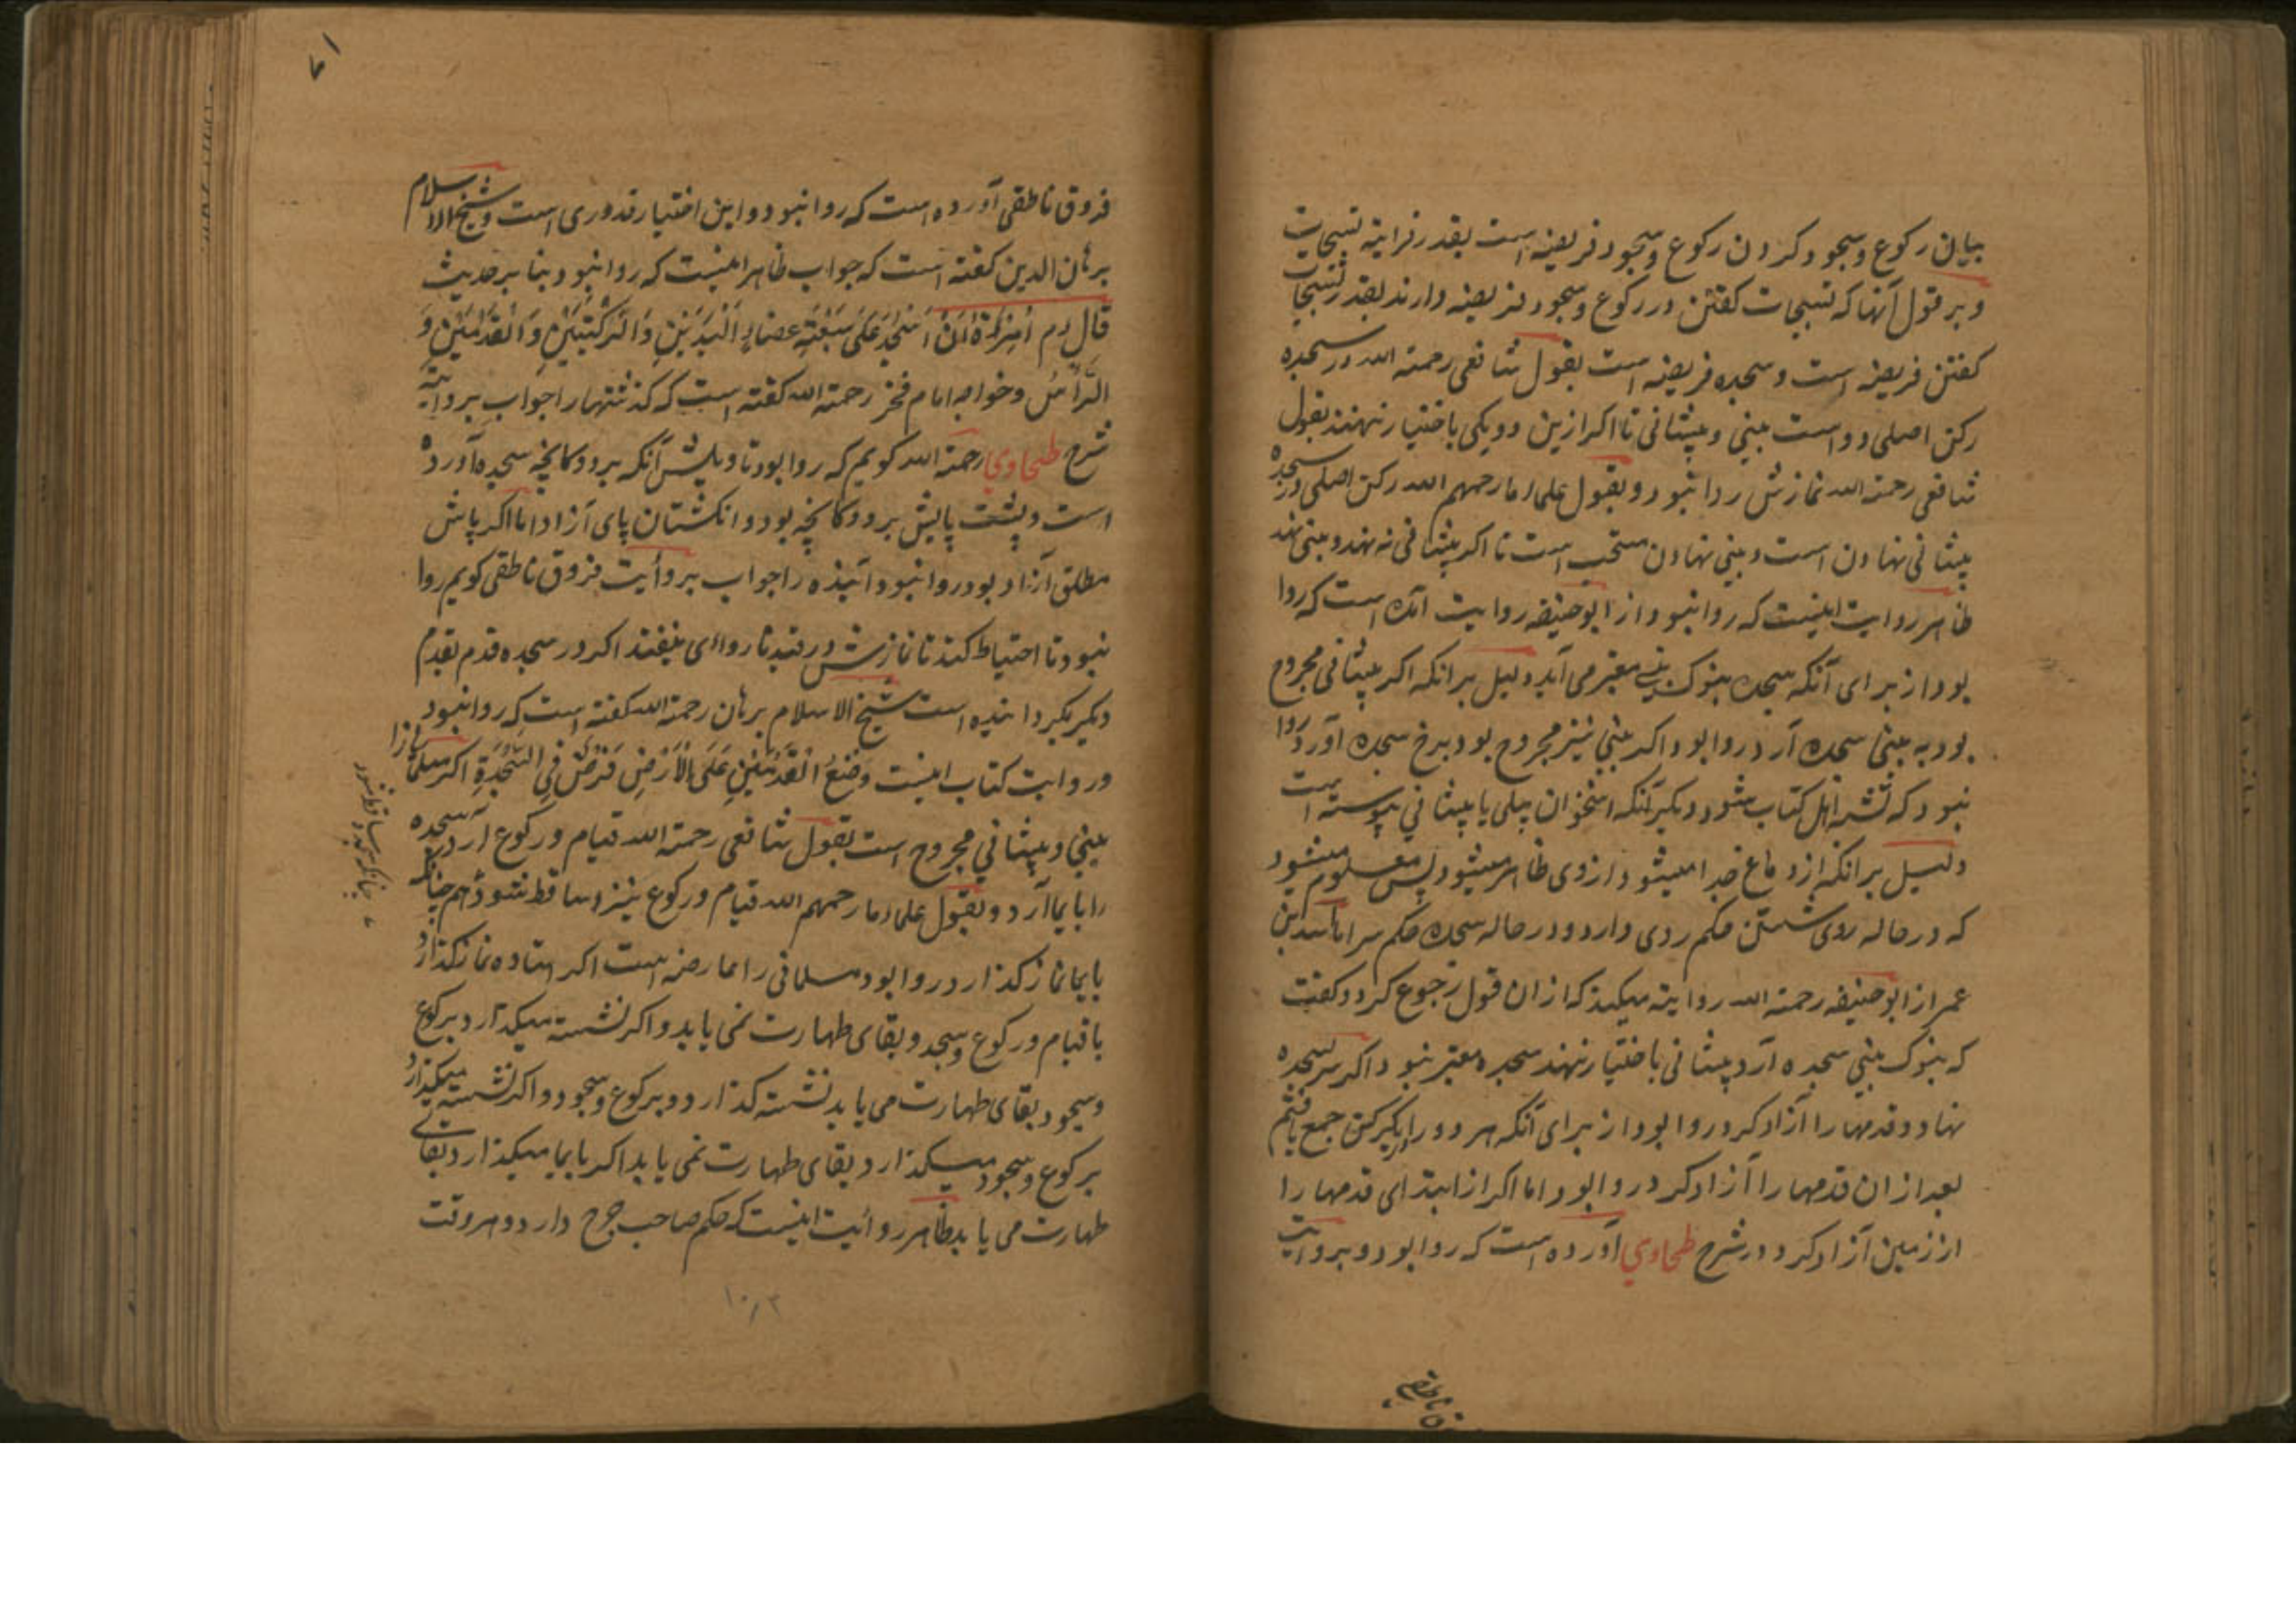 بیان رکوع و سجود کردن رکوع و سجود فریضه است بقدر فرایته تسبیحات
و بر قول آنها که تسبیحات کفتن در رکوع و سجود فریضه دارند بقدر تسبیحات
کفتن فریضه است و سجده فریضه است بقول شافعی رحمته الله در سجده
رکن اصلی دو است بینی و پیشانی تا اکر ازین دو یکی باختیار ننهند بقول
شافعی رحمته الله نمازش روا نبود و بقول علماء ما رحمهم الله رکن اصلی در سجده
پیشانی نهادن است و بینی نهادن مستحب است تا اکر پیشانی نه نهد و بینی نهد
ظاهر روایت اینست که روا نبود و از ابوحنیفه روایت آنک است که روا
بود از برای آنکه سجده بنوک بینی معتبر می آید دلیل بر انکه اکر پیشانی مجروح
بود به بینی سجده آرد روا بود و اکر بینی نیز مجروح بود برخ سجده آورد روا
نبود که تشبه اهل کتاب شود و دیکر آنکه استخوان بینی با پیشانی پیوسته است
دلیل بر انکه از دماغ جدا میشود از روی ظاهر میشود پس معلوم میشود
که در حاله روی شستن حکم روی دارد و در حاله سجده حکم سر اما اسد بن
عمر از ابوحنیفه رحمته الله روایته میکند که از ان قول رجوع کرد و کفت
که بنوک بینی سجده آرد پیشانی باختیار ننهند سجده معتبر نبود و اکر سر بسجده
نهاد و قدمها را آزاد کرد روا بود از برای آنکه هر دو را بیکرکن جمع یافتم
بعد از ان قدمها را آزاد کرد روا بود اما اکر از ابتدای قدمها را
از زمین آزاد کرد در شرح طحاوی آورده است که روا بود و بروایت
فروق ناطقی
۷۱
فروق ناطقی آورده است که روا نبود و این اختیار قدوری است و شیخ الاسلام
برهان الدین کفته است که جواب ظاهر اینست که روا نبود بنا بر حدیث
قال ءم اُمِرْتُ اَنْ اَسْجُدَ عَلَی سَبْعَةِ اعضاءٍ اَلْیَدَیْنِ وَالرُّکْبَتَیْنِ وَالْقَدَمَیْنِ وَ
الرَّأسُ و خواجه امام فخر رحمته الله کفته است که کذشتها را جواب بروایته
شرح طحاوی رحمته الله کویم که روا بود تاویلش آنکه بر دوکانچه سجده آورده
است و پشت پایش بر دوکانچه بود و انکشتان پای آزاد اما اکر پاش
مطلق آزاد بود روا نبود و آینده را جواب بروأیت فروق ناطقی کویم روا
نبود تا احتیاط کند تا نازش در قید ناروائی نیفتد اکر در سجده قدم بقدم
دیکر بکیرداننده است شیخ الاسلام برهان رحمته الله کفته است که روا نبود
و روایت کتاب اینست وَضْعُ الْقَدَمَیْنِ عَلَی الْاَرْضِ فَرْضٌ فِی السَّجْدَةِ اکر مسلمانی را
بینی و پیشانی مجروح است بقول شافعی رحمته الله قیام و رکوع آرد سجده
را بایما آرد و بقول علماء ما رحمهم الله قیام و رکوع نیز ساقط شود هم چنانکه
بایما نماز کذارد روا بود مسلمانی را عارضه است اکر استاده نماز کذارد
با قیام و رکوع و سجد و بقای طهارت نمی یابد و اکر نشسته میکذارد برکوع
و سجود بقای طهارت می یابد نشسته کذارد و برکوع و سجود و اکر نشسته میکذارد
برکوع و سجود میکذارد بقای طهارت نمی یابد اکر بایما میکذارد بقای
طهارت می یابد ظاهر روأیت اینست که حکم صاحب جرح دارد و هر وقت
چنانکه سجده ساقط شود
۱۰/۳